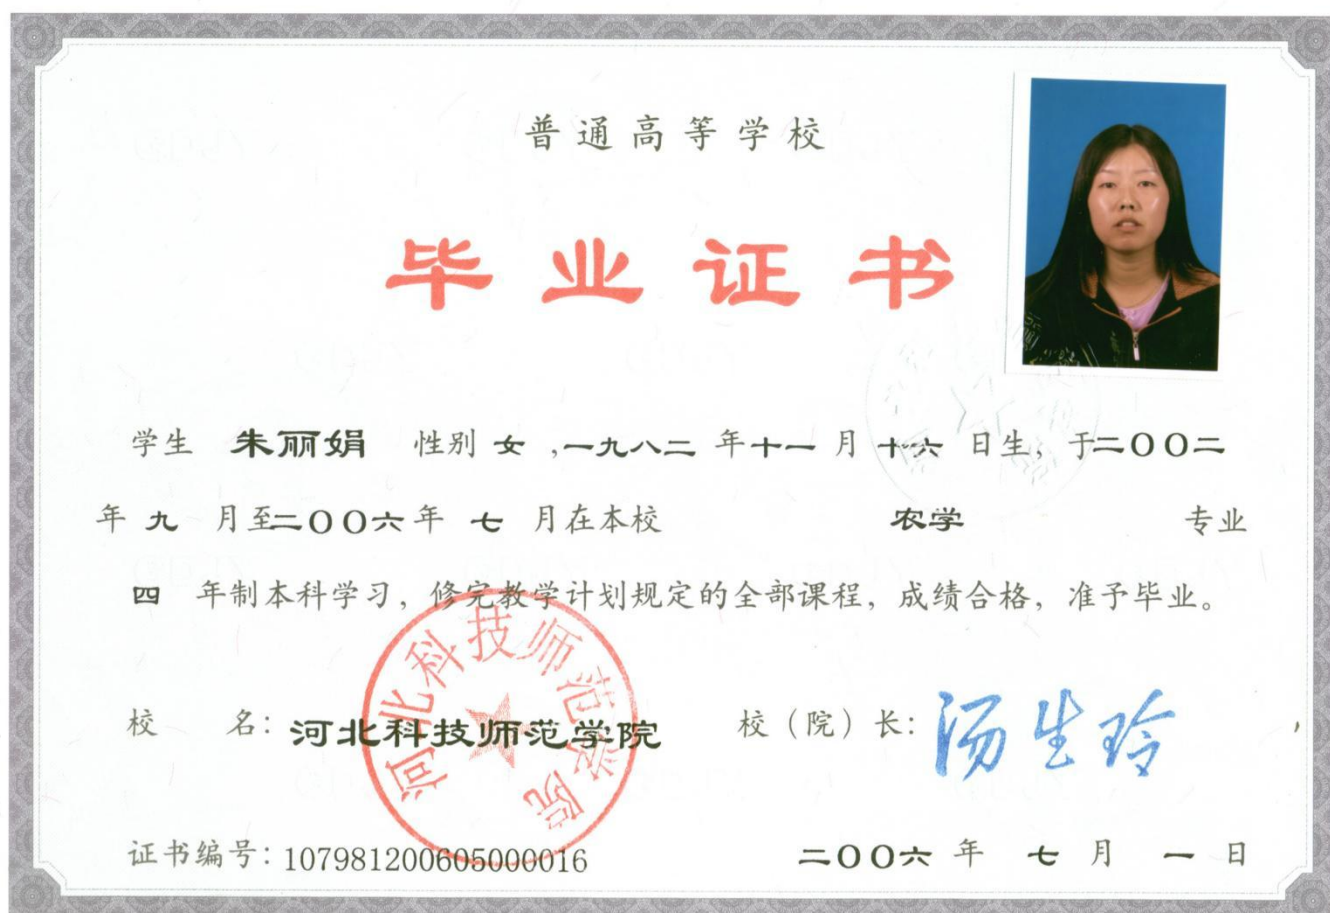 普通高等学校
毕业证书
学生 朱丽娟 性别 女 ,一九八二 年十一 月 十六 日生, 于二〇〇二
年 九 月至二〇〇六年 七 月在本校 农学 专业
四 年制本科学习, 修完教学计划规定的全部课程, 成绩合格, 准予毕业。
河北科技师范学院
校 名: 河北科技师范学院 校(院)长: 汤生玲
证书编号: 107981200605000016 二〇〇六 年 七 月 一 日